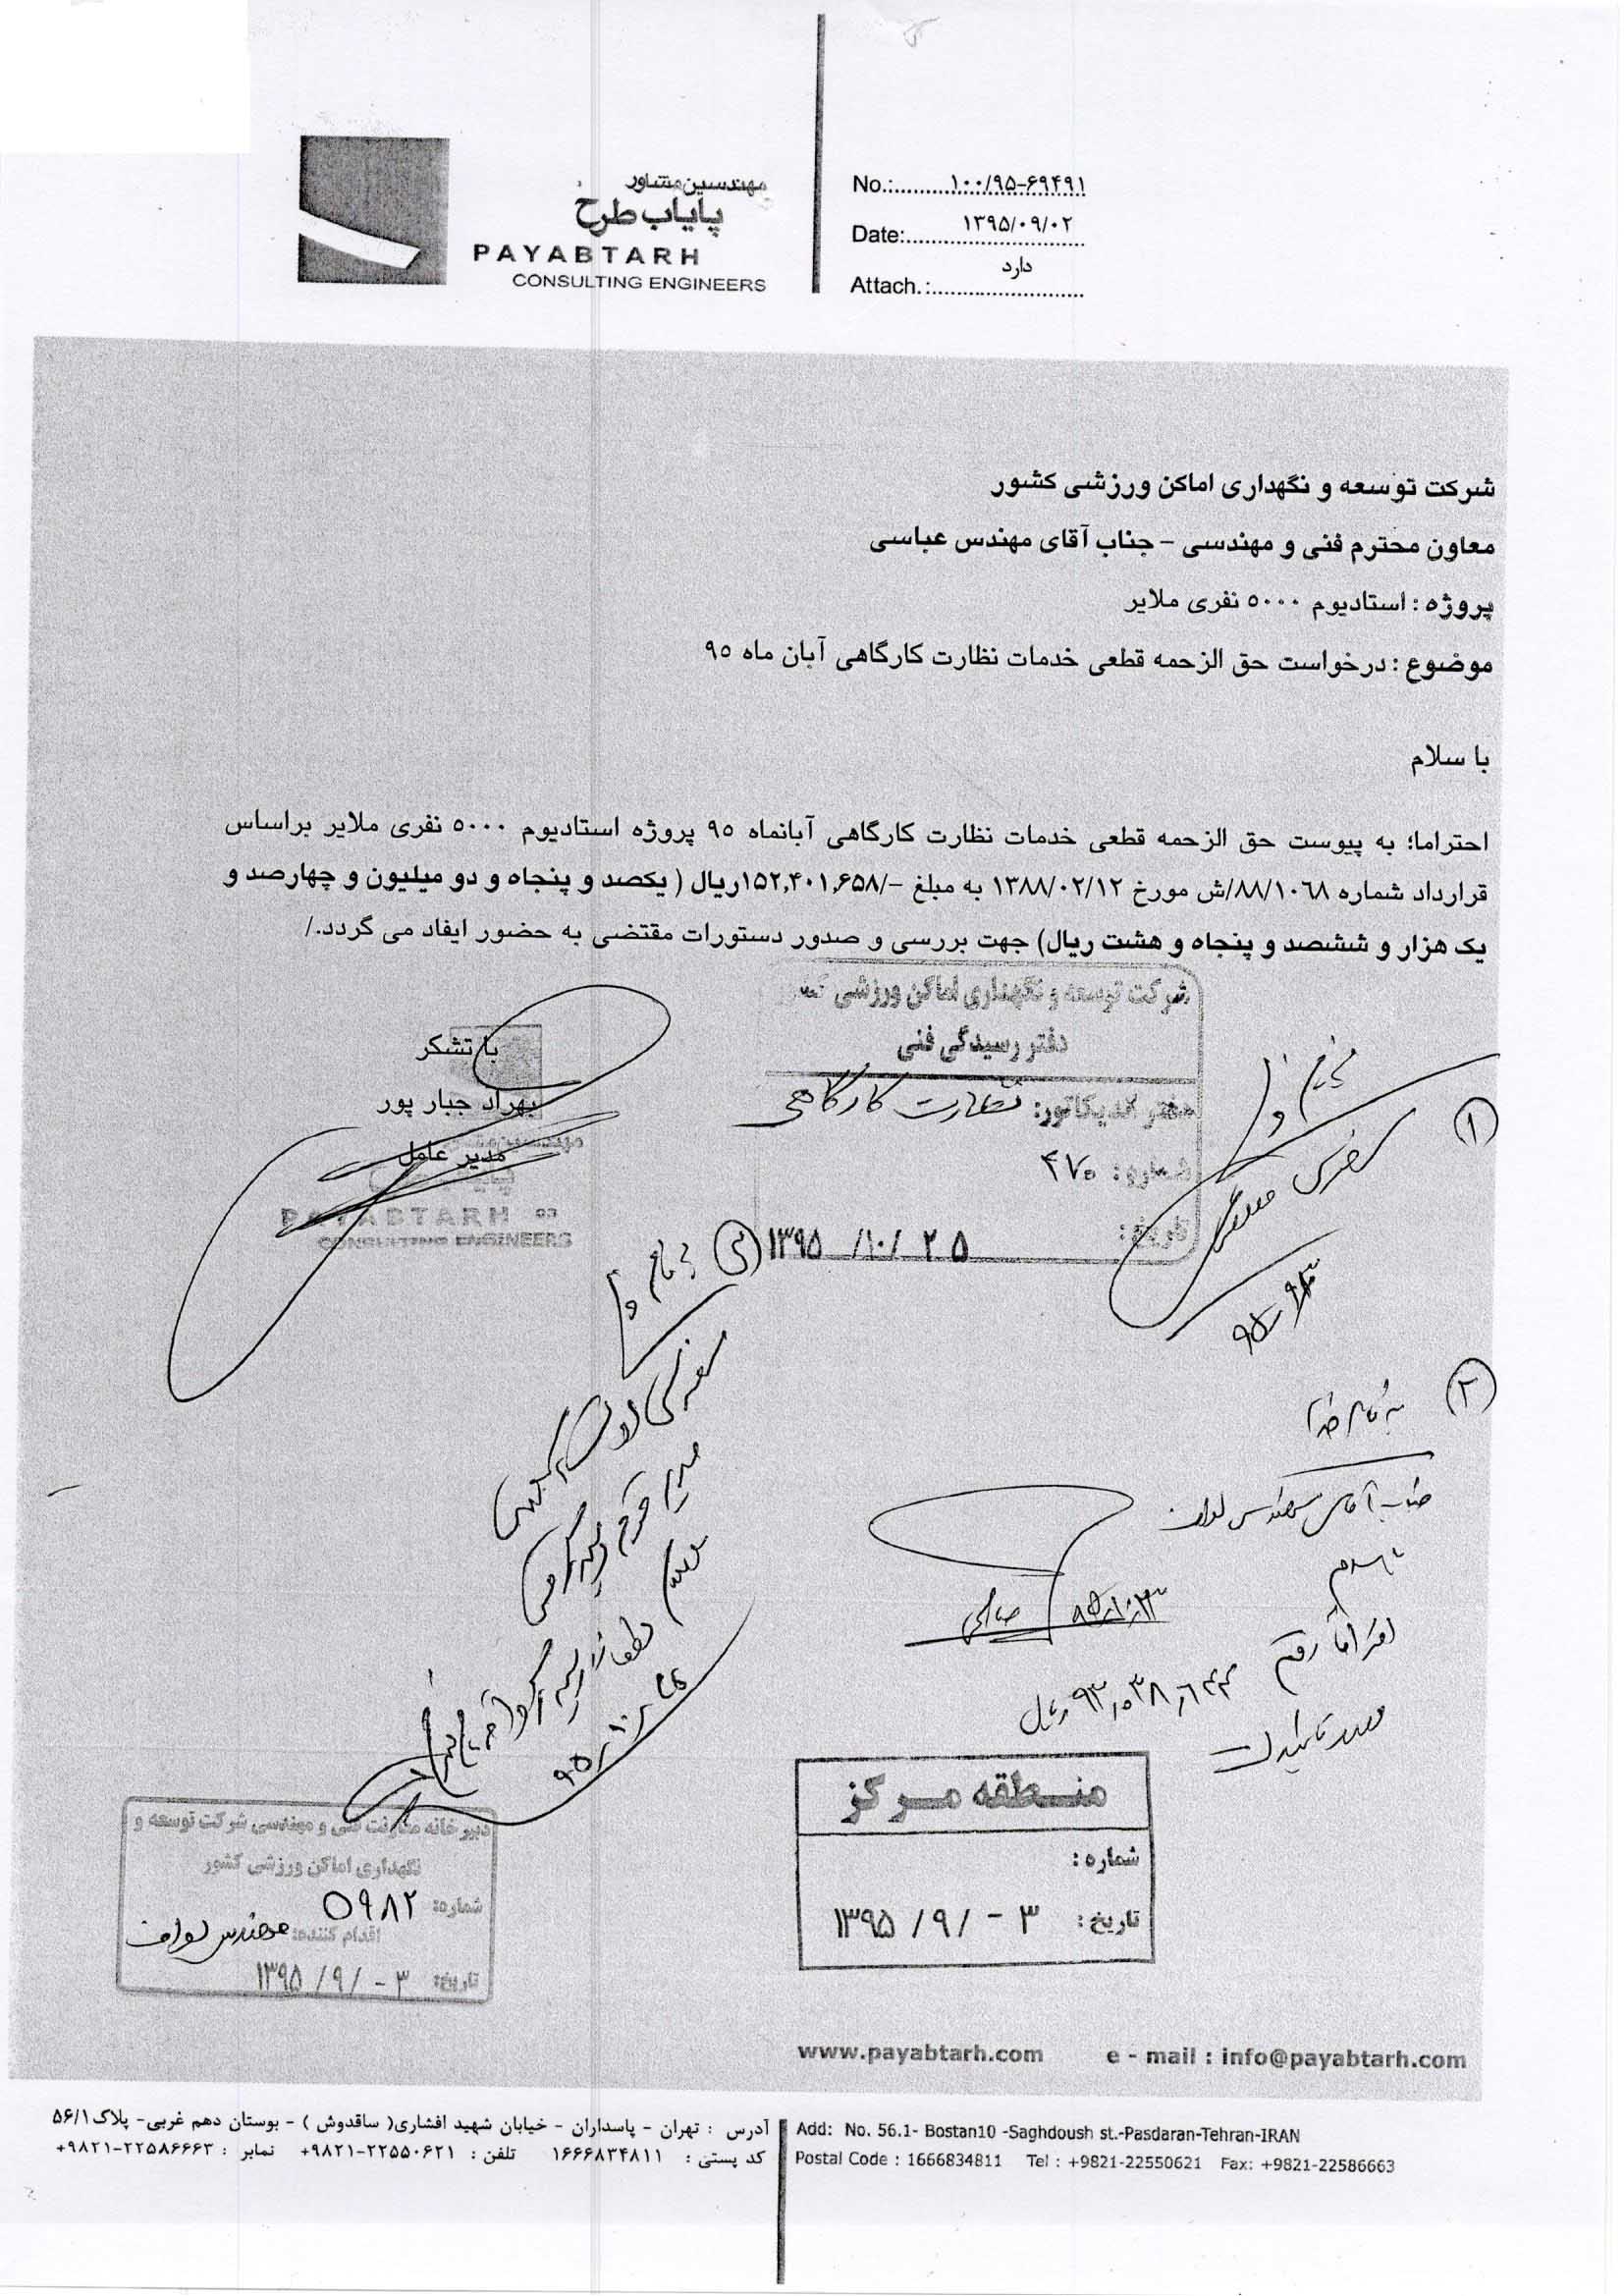 مهندسین مشاور
پایاب طرح
PAYABTARH
CONSULTING ENGINEERS
No.:۱۰۰/۹۵-۶۹۴۹۱
Date:۱۳۹۵/۰۹/۰۲
Attach.:دارد
شرکت توسعه و نگهداری اماکن ورزشی کشور
معاون محترم فنی و مهندسی - جناب آقای مهندس عباسی
پروژه : استادیوم ۵۰۰۰ نفری ملایر
موضوع : درخواست حق الزحمه قطعی خدمات نظارت کارگاهی آبان ماه ۹۵
با سلام
احتراما؛ به پیوست حق الزحمه قطعی خدمات نظارت کارگاهی آبانماه ۹۵ پروژه استادیوم ۵۰۰۰ نفری ملایر براساس
قرارداد شماره ۸۸/۱۰۶۸/ش مورخ ۱۳۸۸/۰۲/۱۲ به مبلغ -/۱۵۲,۴۰۱,۶۵۸ریال ( یکصد و پنجاه و دو میلیون و چهارصد و
یک هزار و ششصد و پنجاه و هشت ریال) جهت بررسی و صدور دستورات مقتضی به حضور ایفاد می گردد./
با تشکر
بهراد جبار پور
مدیر عامل
مهندسین
PAYABTARH
CONSULTING ENGINEERS
شرکت توسعه و نگهداری اماکن ورزشی
دفتر رسیدگی فنی
دفتر اندیکاتور: نظارت کارگاهی
شماره: ۴۷۰
تاریخ: ۱۳۹۵ /۱۰/ ۲۵
۱
۲
جناب آقای مهندس
با سلام
احتراما رقم
۹۳,۰۳۸,۶۴۴ ریال
مورد تایید است
صالحی
منطقه مرکز
شماره :
تاریخ : ۳ - /۹ / ۱۳۹۵
دبیرخانه معاونت فنی و مهندسی شرکت توسعه و
نگهداری اماکن ورزشی کشور
شماره: ۵۹۸۲
اقدام کننده: مهندس
تاریخ: ۳ - /۹ / ۱۳۹۵
www.payabtarh.com e - mail : info@payabtarh.com
آدرس : تهران - پاسداران - خیابان شهید افشاری( ساقدوش ) - بوستان دهم غربی- پلاک ۵۶/۱
کد پستی : ۱۶۶۶۸۳۴۸۱۱ تلفن : ۲۲۵۵۰۶۲۱-۹۸۲۱+ نمابر : ۲۲۵۸۶۶۶۳-۹۸۲۱+
Add: No. 56.1- Bostan10 -Saghdoush st.-Pasdaran-Tehran-IRAN
Postal Code : 1666834811 Tel : +9821-22550621 Fax: +9821-22586663